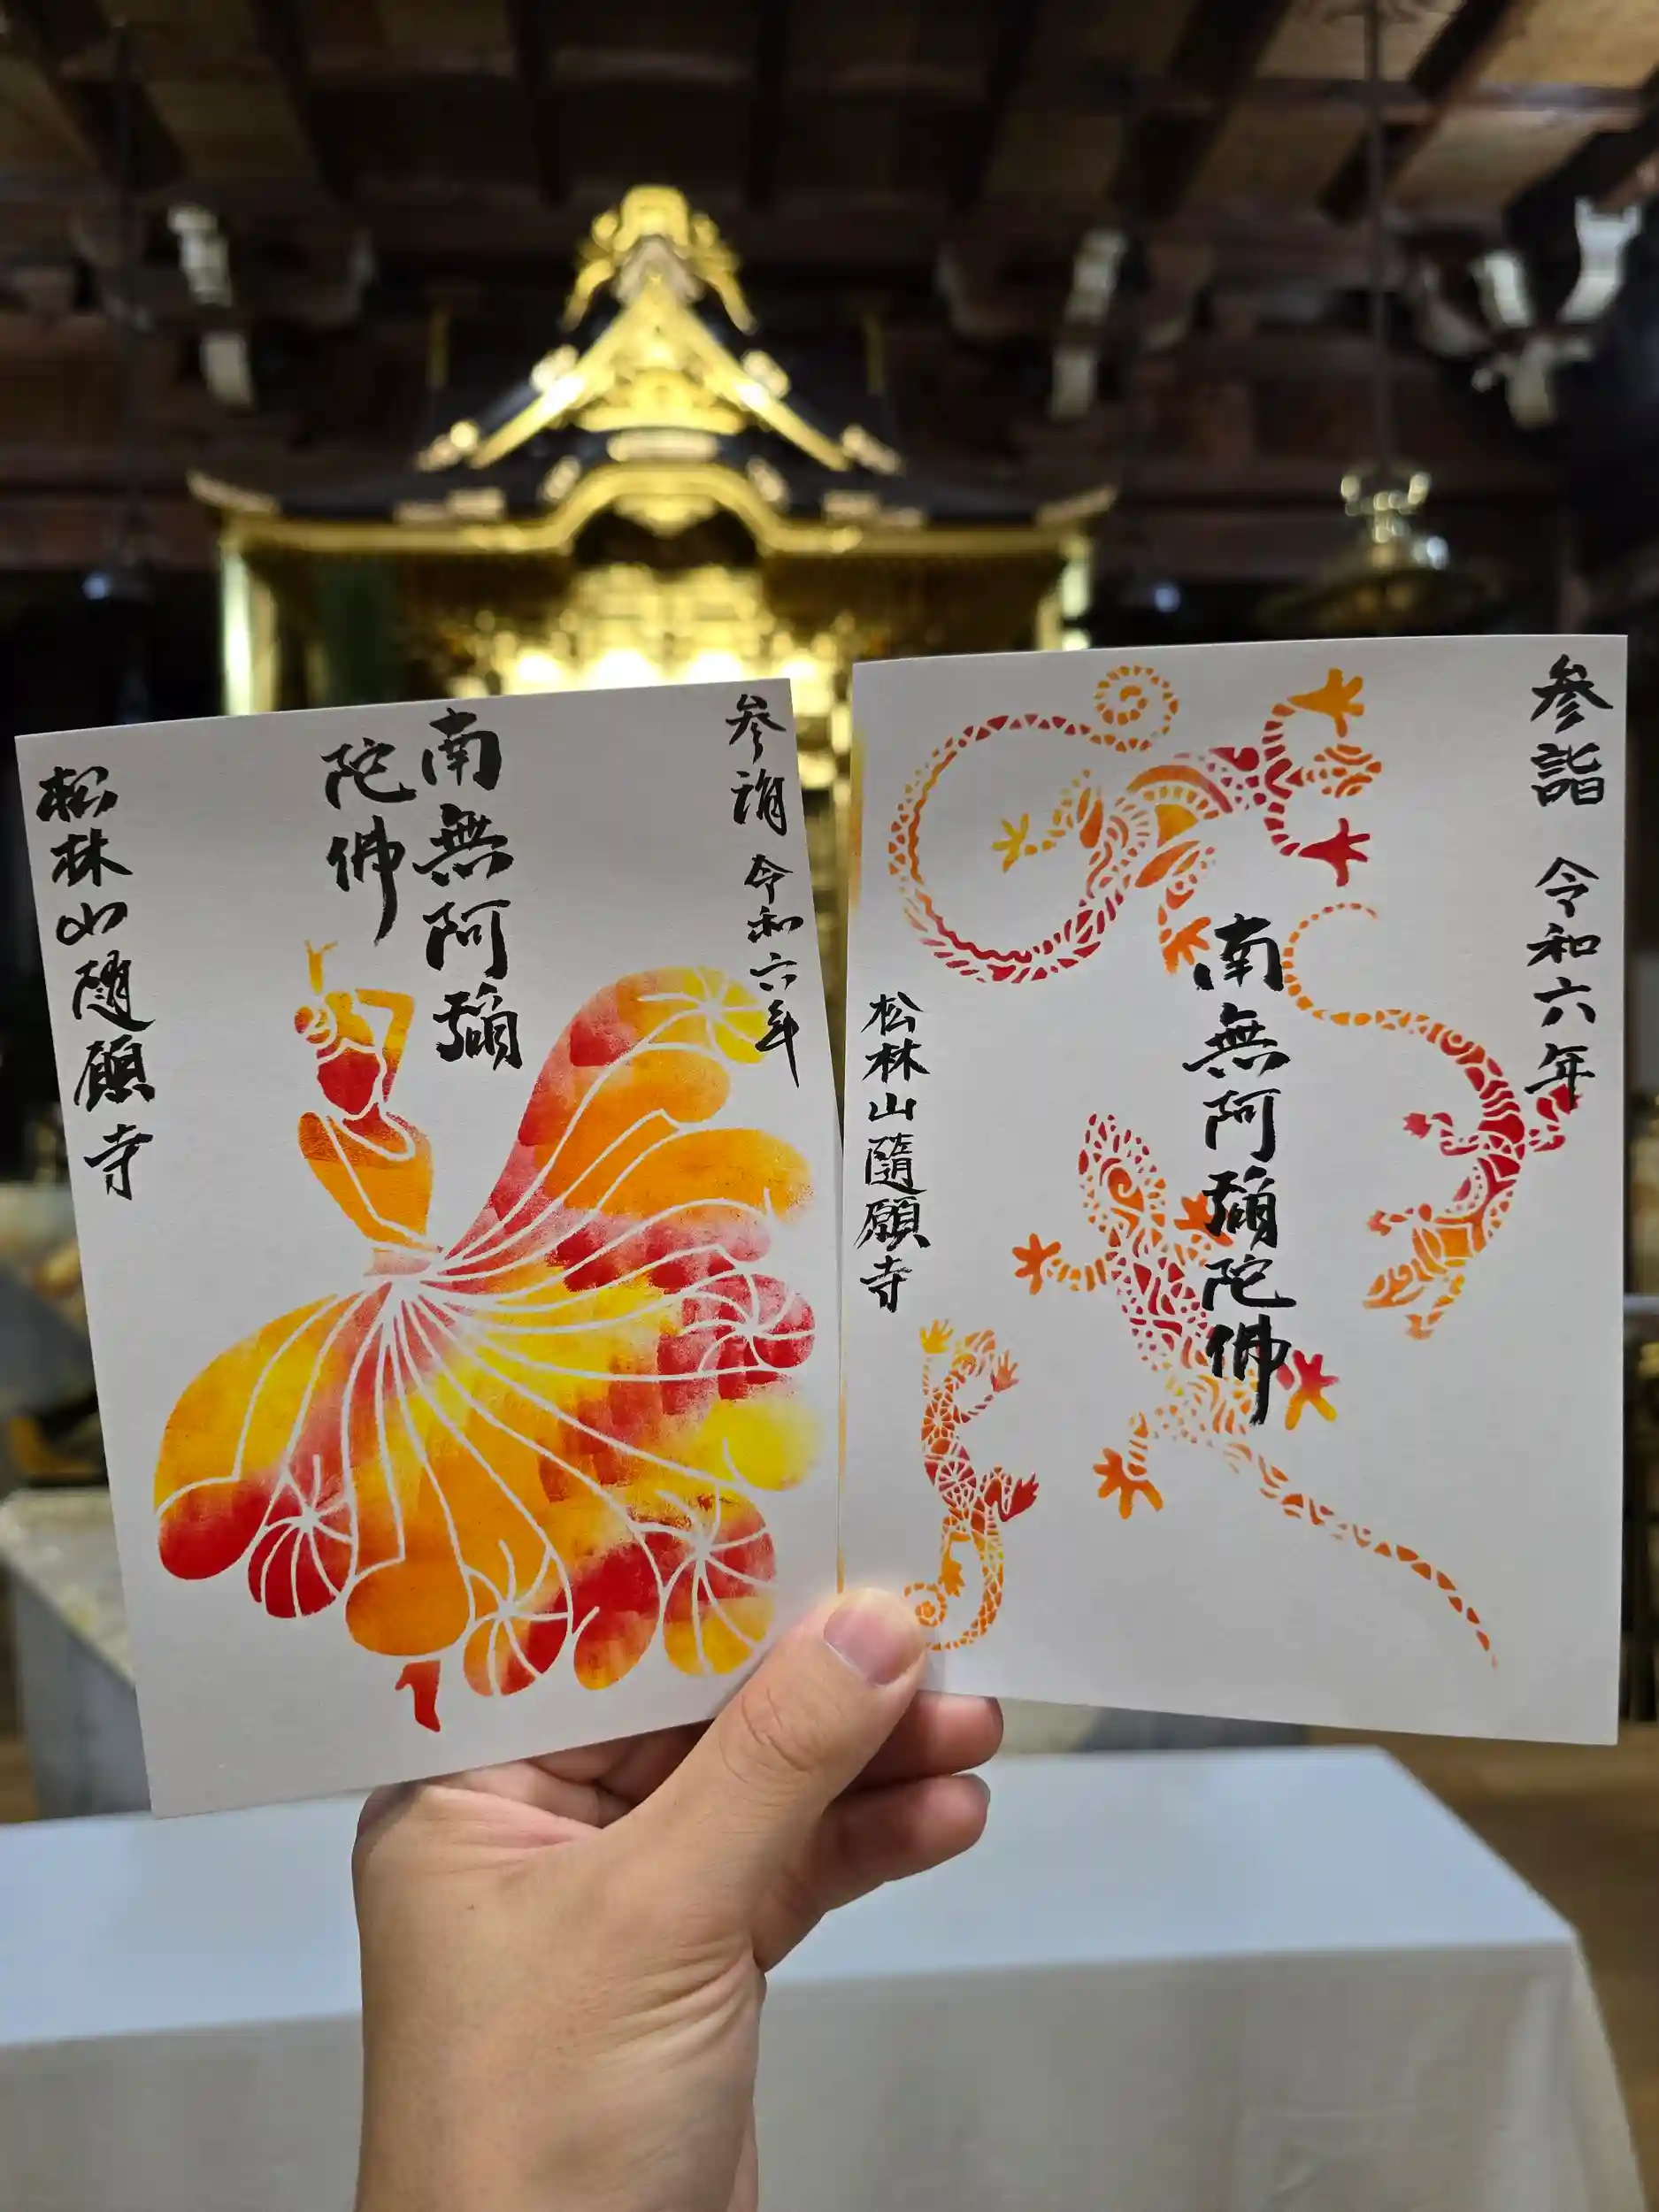 参詣 令和六年
南無阿彌
陀佛
松林山隨願寺
参詣 令和六年
南無阿彌陀佛
松林山隨願寺